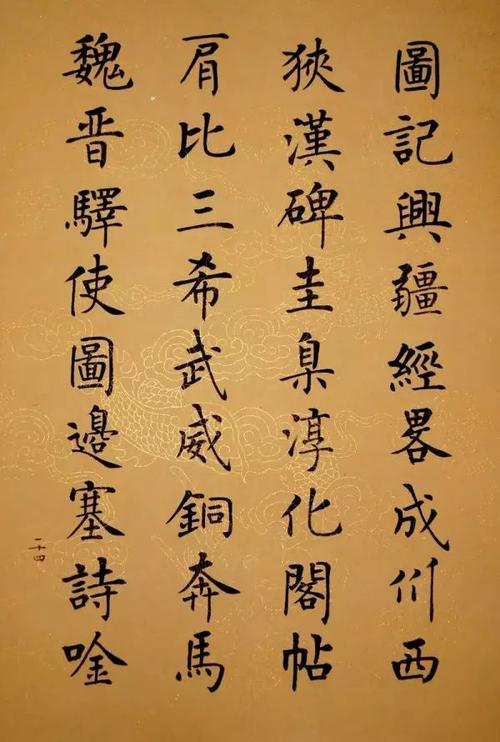 圖記興疆經畧成川西
狹漢碑圭臬淳化閣帖
肩比三希武威銅奔馬
魏晉驛使圖邊塞詩唫
二十四